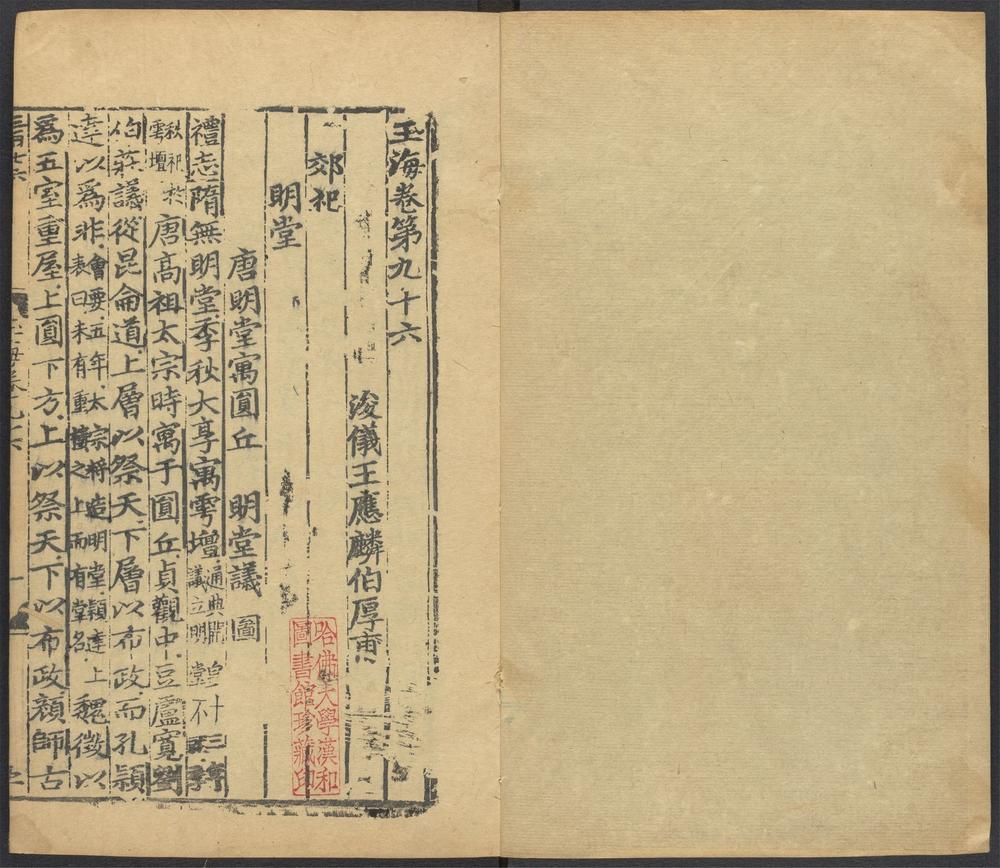 玉海卷第九十六
浚儀王應麟伯厚甫
郊祀
明堂
唐明堂寓圓丘 明堂議 圖
禮志隋無明堂季秋大享寓雩壇通典開皇
議立明堂不
秋祀於
雩壇唐高祖太宗時寓于圓丘貞觀中豆盧寬劉
伯莊議從昆侖道上層以祭天下層以布政而孔穎
達以爲非會要五年太宗將造明堂穎達上
表曰未有重樓之上而有堂名魏徵以
爲五室重屋上圓下方上以祭天下以布政顏師古
哈佛大學漢和
圖書館珍藏印